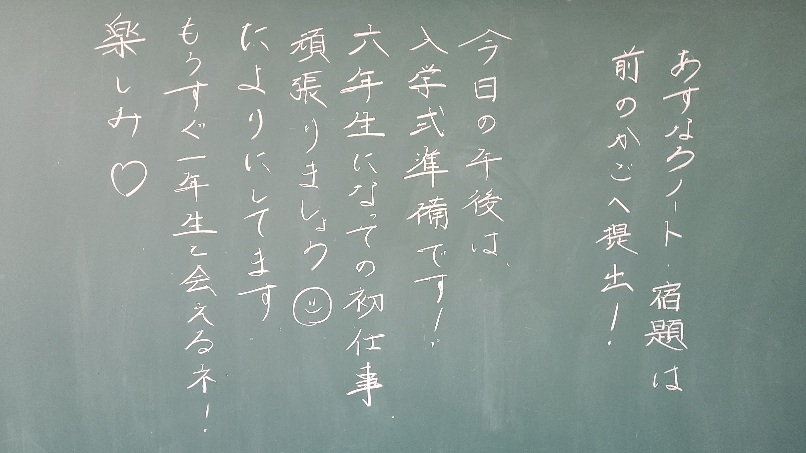 あすなろノート・宿題は
前のかごへ提出！
今日の午後は、
入学式準備です！
六年生になっての初仕事
頑張りましょう☺
たよりにしてます
もうすぐ一年生と会えるネ！
楽しみ♡